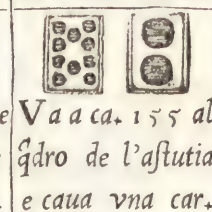 e Vaaca. 155 al
q̃dro de l'aſtutia
e caua vna car.